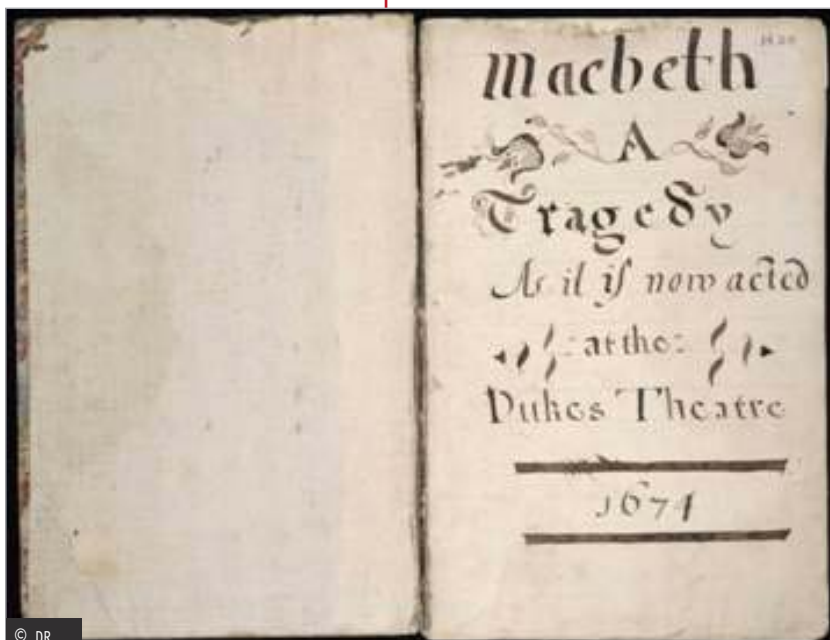 Macbeth
A
Tragedy
As it is now acted
:at the:
Dukes Theatre
1674
© DR